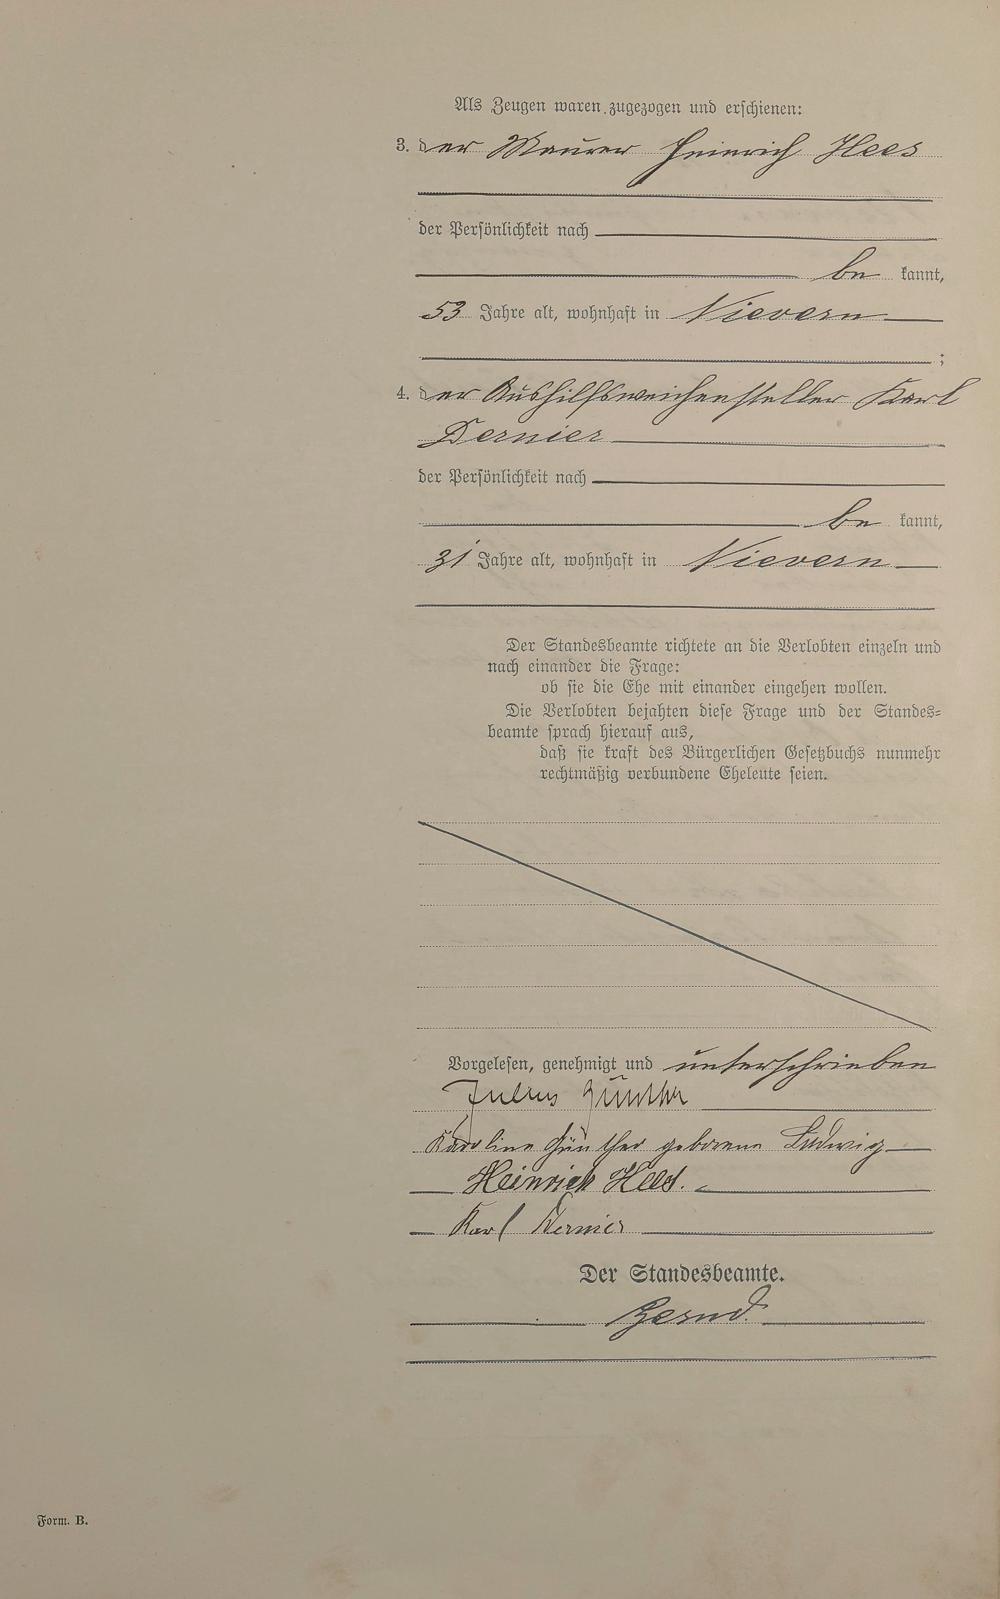 Als Zeugen waren zugezogen und erschienen:
3. der Maurer Heinrich Hees
der Persönlichkeit nach
be kannt,
53 Jahre alt, wohnhaft in Nievern
;
4. der Aushilfsweichensteller Karl
Dernier
der Persönlichkeit nach
be kannt,
31 Jahre alt, wohnhaft in Nievern
Der Standesbeamte richtete an die Verlobten einzeln und
nach einander die Frage:
ob sie die Ehe mit einander eingehen wollen.
Die Verlobten bejahten diese Frage und der Standes=
beamte sprach hierauf aus,
daß sie kraft des Bürgerlichen Gesetzbuchs nunmehr
rechtmäßig verbundene Eheleute seien.
Vorgelesen, genehmigt und unterschrieben
Julius Günther
Karoline Günther geborene Ludwig
Heinrich Hees.
Karl Dernier
Der Standesbeamte.
Form. B.